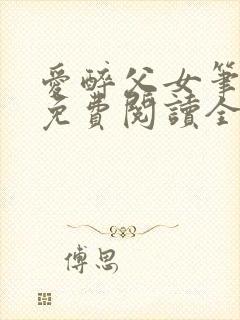 愛醉父女筆
免費閱讀全
傅思